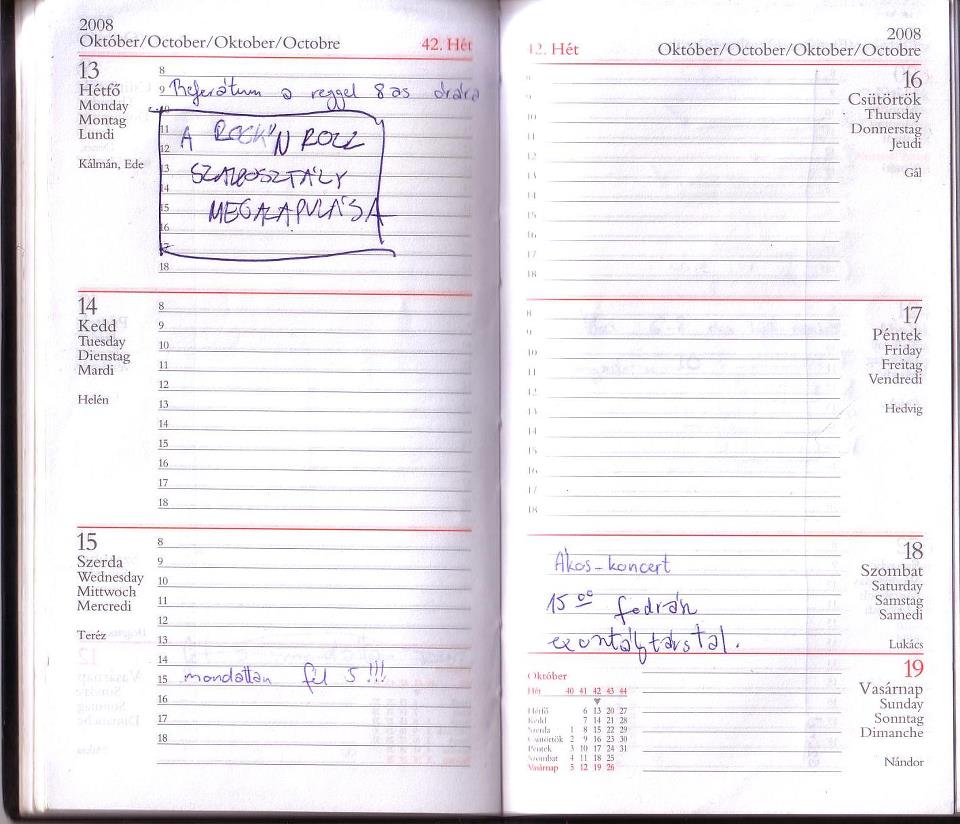 2008
Október/October/Oktober/Octobre
42. Hét
13
Hétfő
Monday
Montag
Lundi
Kálmán, Ede
8
9 Referátum a reggel 8 as órára
10
11 A ROCK'N ROLL
12
13 SZAKOSZTÁLY
14
15 MEGALAPULÁSA
16
17
18
14
Kedd
Tuesday
Dienstag
Mardi
Helén
8
9
10
11
12
13
14
15
16
17
18
15
Szerda
Wednesday
Mittwoch
Mercredi
Teréz
8
9
10
11
12
13
14
15 mondattan fél 5!!!
16
17
18
42. Hét
2008
Október/October/Oktober/Octobre
16
Csütörtök
Thursday
Donnerstag
Jeudi
Gál
8
9
10
11
12
13
14
15
16
17
18
17
Péntek
Friday
Freitag
Vendredi
Hedvig
8
9
10
11
12
13
14
15
16
17
18
18
Szombat
Saturday
Samstag
Samedi
Lukács
Ákos-koncert
15 00 fodrán
exosztálytárstal.
19
Vasárnap
Sunday
Sonntag
Dimanche
Nándor
Október
Hét 40 41 42 43 44
Hétfő 6 13 20 27
Kedd 7 14 21 28
Szerda 1 8 15 22 29
Csütörtök 2 9 16 23 30
Péntek 3 10 17 24 31
Szombat 4 11 18 25
Vasárnap 5 12 19 26